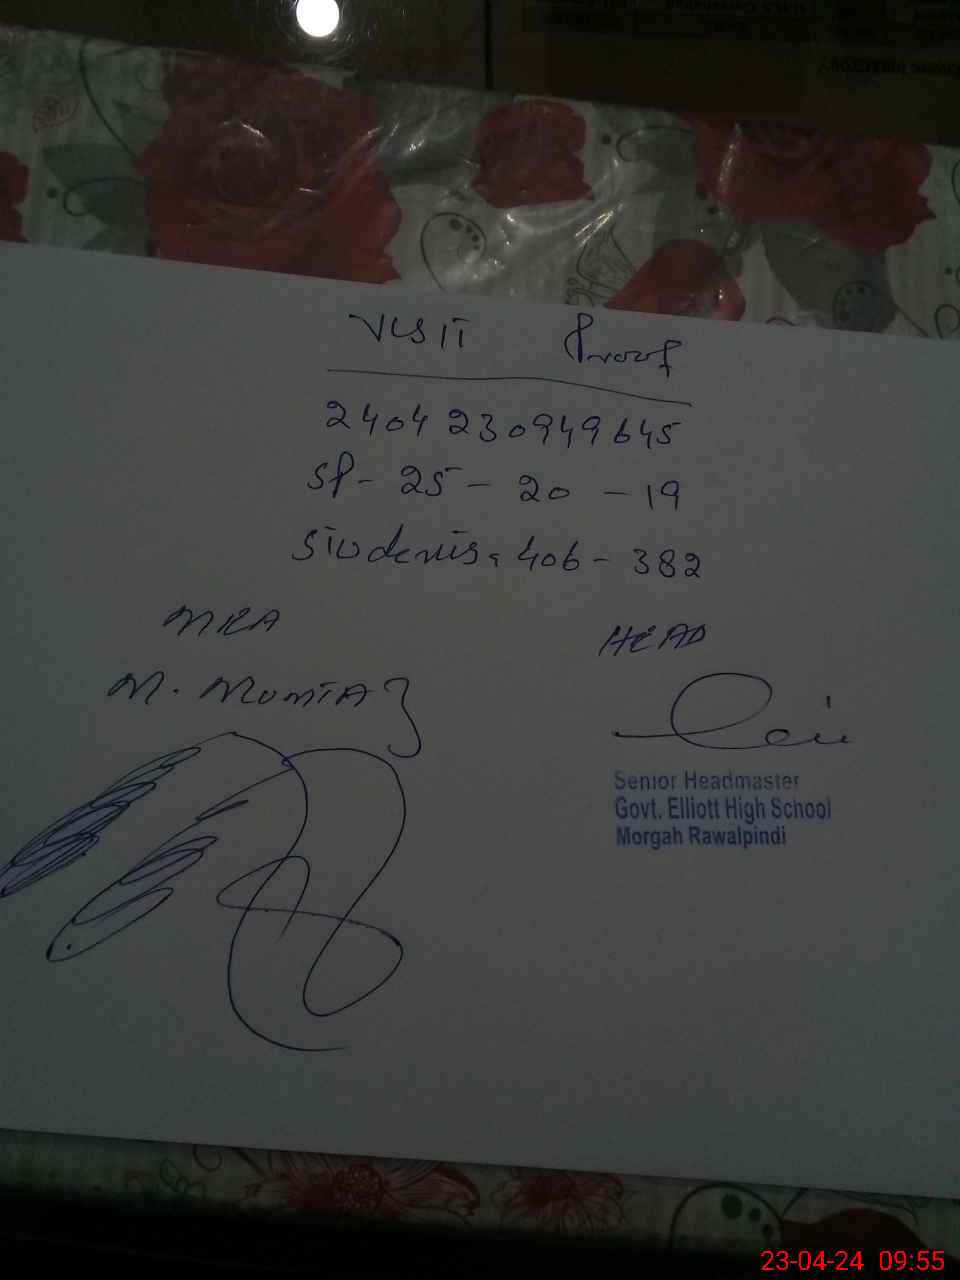 VISIT Proof
2404230949645
SP- 25 - 20 - 19
Students: 406 - 382
MEA
HEAD
M. MUMTAZ
Senior Headmaster
Govt. Elliott High School
Morgah Rawalpindi
23-04-24 09:55